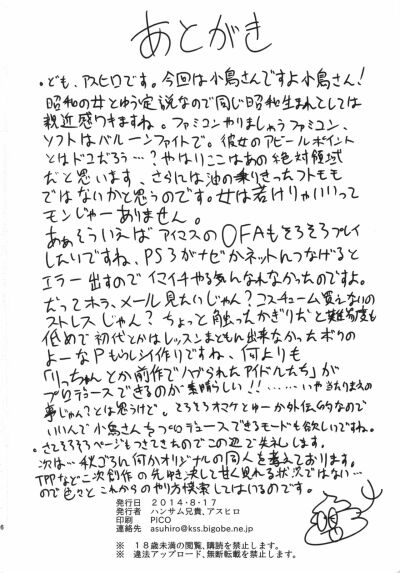 あとがき
・ども、アスヒロです。今回は小鳥さんですよ小鳥さん!
昭和の女とゆう定説なので同じ昭和生まれとしては
親近感ワキますね。ファミコンやりましょうファミコン、
ソフトはバルーンファイトで。彼女のアピールポイント
とはドコだろう…?やはりここはあの絶対領域
だと思います、さらには油の乗りきったフトモモ
ではないかと思うのです。女は若けりゃいいって
モンじゃーありません。
ああそういえばアイマスのOFAもそろそろプレイ
したいですね、PS3がナゼかネットにつなげると
エラー出すのでイマイチやる気になれなかったのですよ。
だってホラ、メール見たいじゃん?コスチューム買えないの
ストレスじゃん?ちょっと触ったかぎりだと難易度も
低めで初代とかはレッスンまともに出来なかったボクの
よーなPもうれしい作りですね、何よりも
「りっちゃんとか前作でハブられたアイドルたち」が
プロデュースできるのが素晴らしい!!……いや当たりまえの
事じゃん?とは思うけど。そろそろオマケとゆーか外伝的なので
いいんで小鳥さんもプロデュースできるモードも欲しいですね。
・さてそろそろページもつきてきたのでこの辺で失礼します。
次は…秋ごろに何かオリジナルの同人を考えております。
TPPなど二次創作の先ゆき決して甘く見れる状況ではない…
ので色々とこれからのやり方模索してはいるのです。
発行日 2014・8・17
発行者 ハンサム兄貴、アスヒロ
印刷 PICO
連絡先 asuhiro@kss.biglobe.ne.jp
※ 18歳未満の閲覧、購読を禁止します。
※ 違法アップロード、無断転載を禁止します。
6